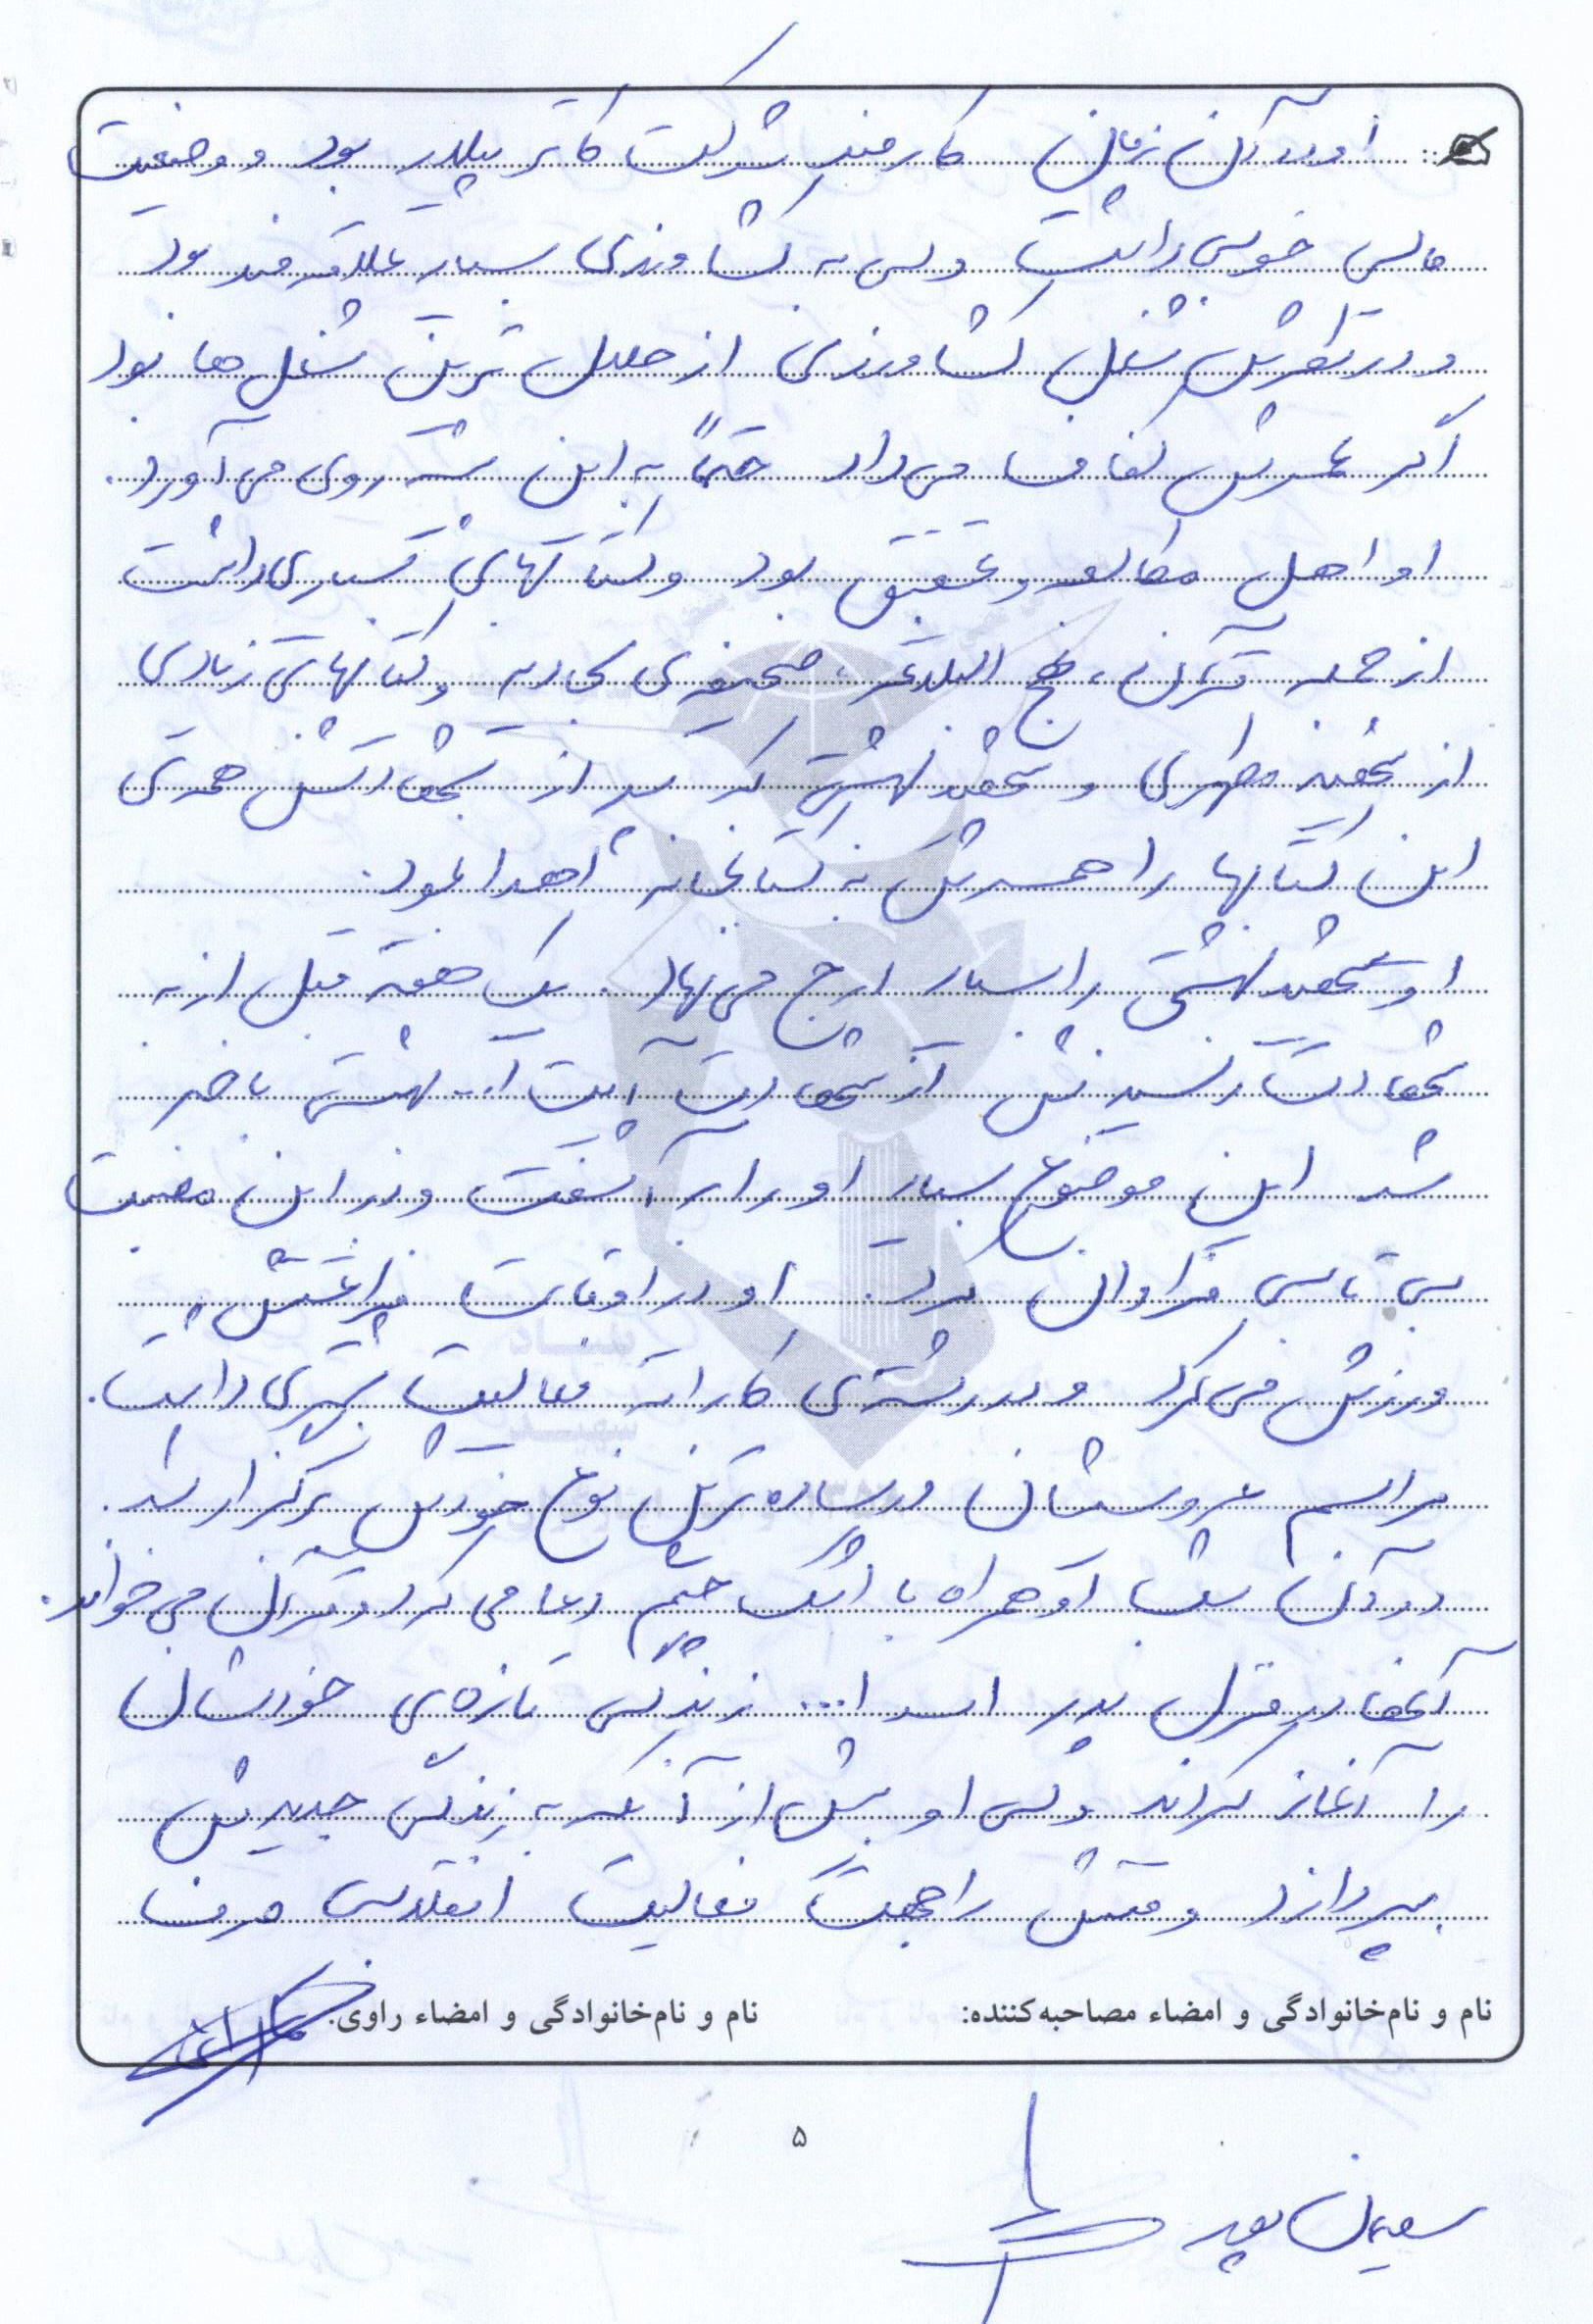 او در آن زمان کارمند شرکت کاترپیلار بود و وضعیت
مالی خوبی داشت ولی به کشاورزی بسیار علاقه مند بود
و در نظرش شغل کشاورزی از حلال ترین شغل ها بود
اگر عمرش کفاف می‌داد حتماً به این رشته روی می آورد.
او اهل مطالعه و تحقیق بود و کتابهای بسیاری داشت
از جمله قرآن، نهج البلاغه، صحیفه‌ی سجادیه و کتابهای زیادی
از شهید مطهری و شهید بهشتی که بعد از شهادتش همه‌ی
این کتابها را همسرش به کتابخانه اهدا نمود.
او شهید بهشتی را بسیار ارج می نهاد. یک هفته قبل از به
شهادت رسیدنش از شهادت آیت ا... بهشتی با خبر
شد این موضوع بسیار او را برآشفت و در این مصیبت
بی تابی فراوان کرد. او در اوقات فراغتش
ورزش می کرد و در رشته‌ی کاراته فعالیت بهتری داشت.
مراسم عروسیشان در ساده ترین نوع خودش برگزار شد.
در آن شب او همراه با اشک چشم دعا می کرد و قرآن می خواند.
آنها در منزل پدر اسد ا... زندگی تازه‌ی خودشان
را آغاز کردند ولی او بیش از آنکه به زندگی جدیدش
بپردازد وقتش را جهت فعالیت انقلابی صرف
نام و نام‌خانوادگی و امضاء مصاحبه‌کننده: نام و نام‌خانوادگی و امضاء راوی:
۵